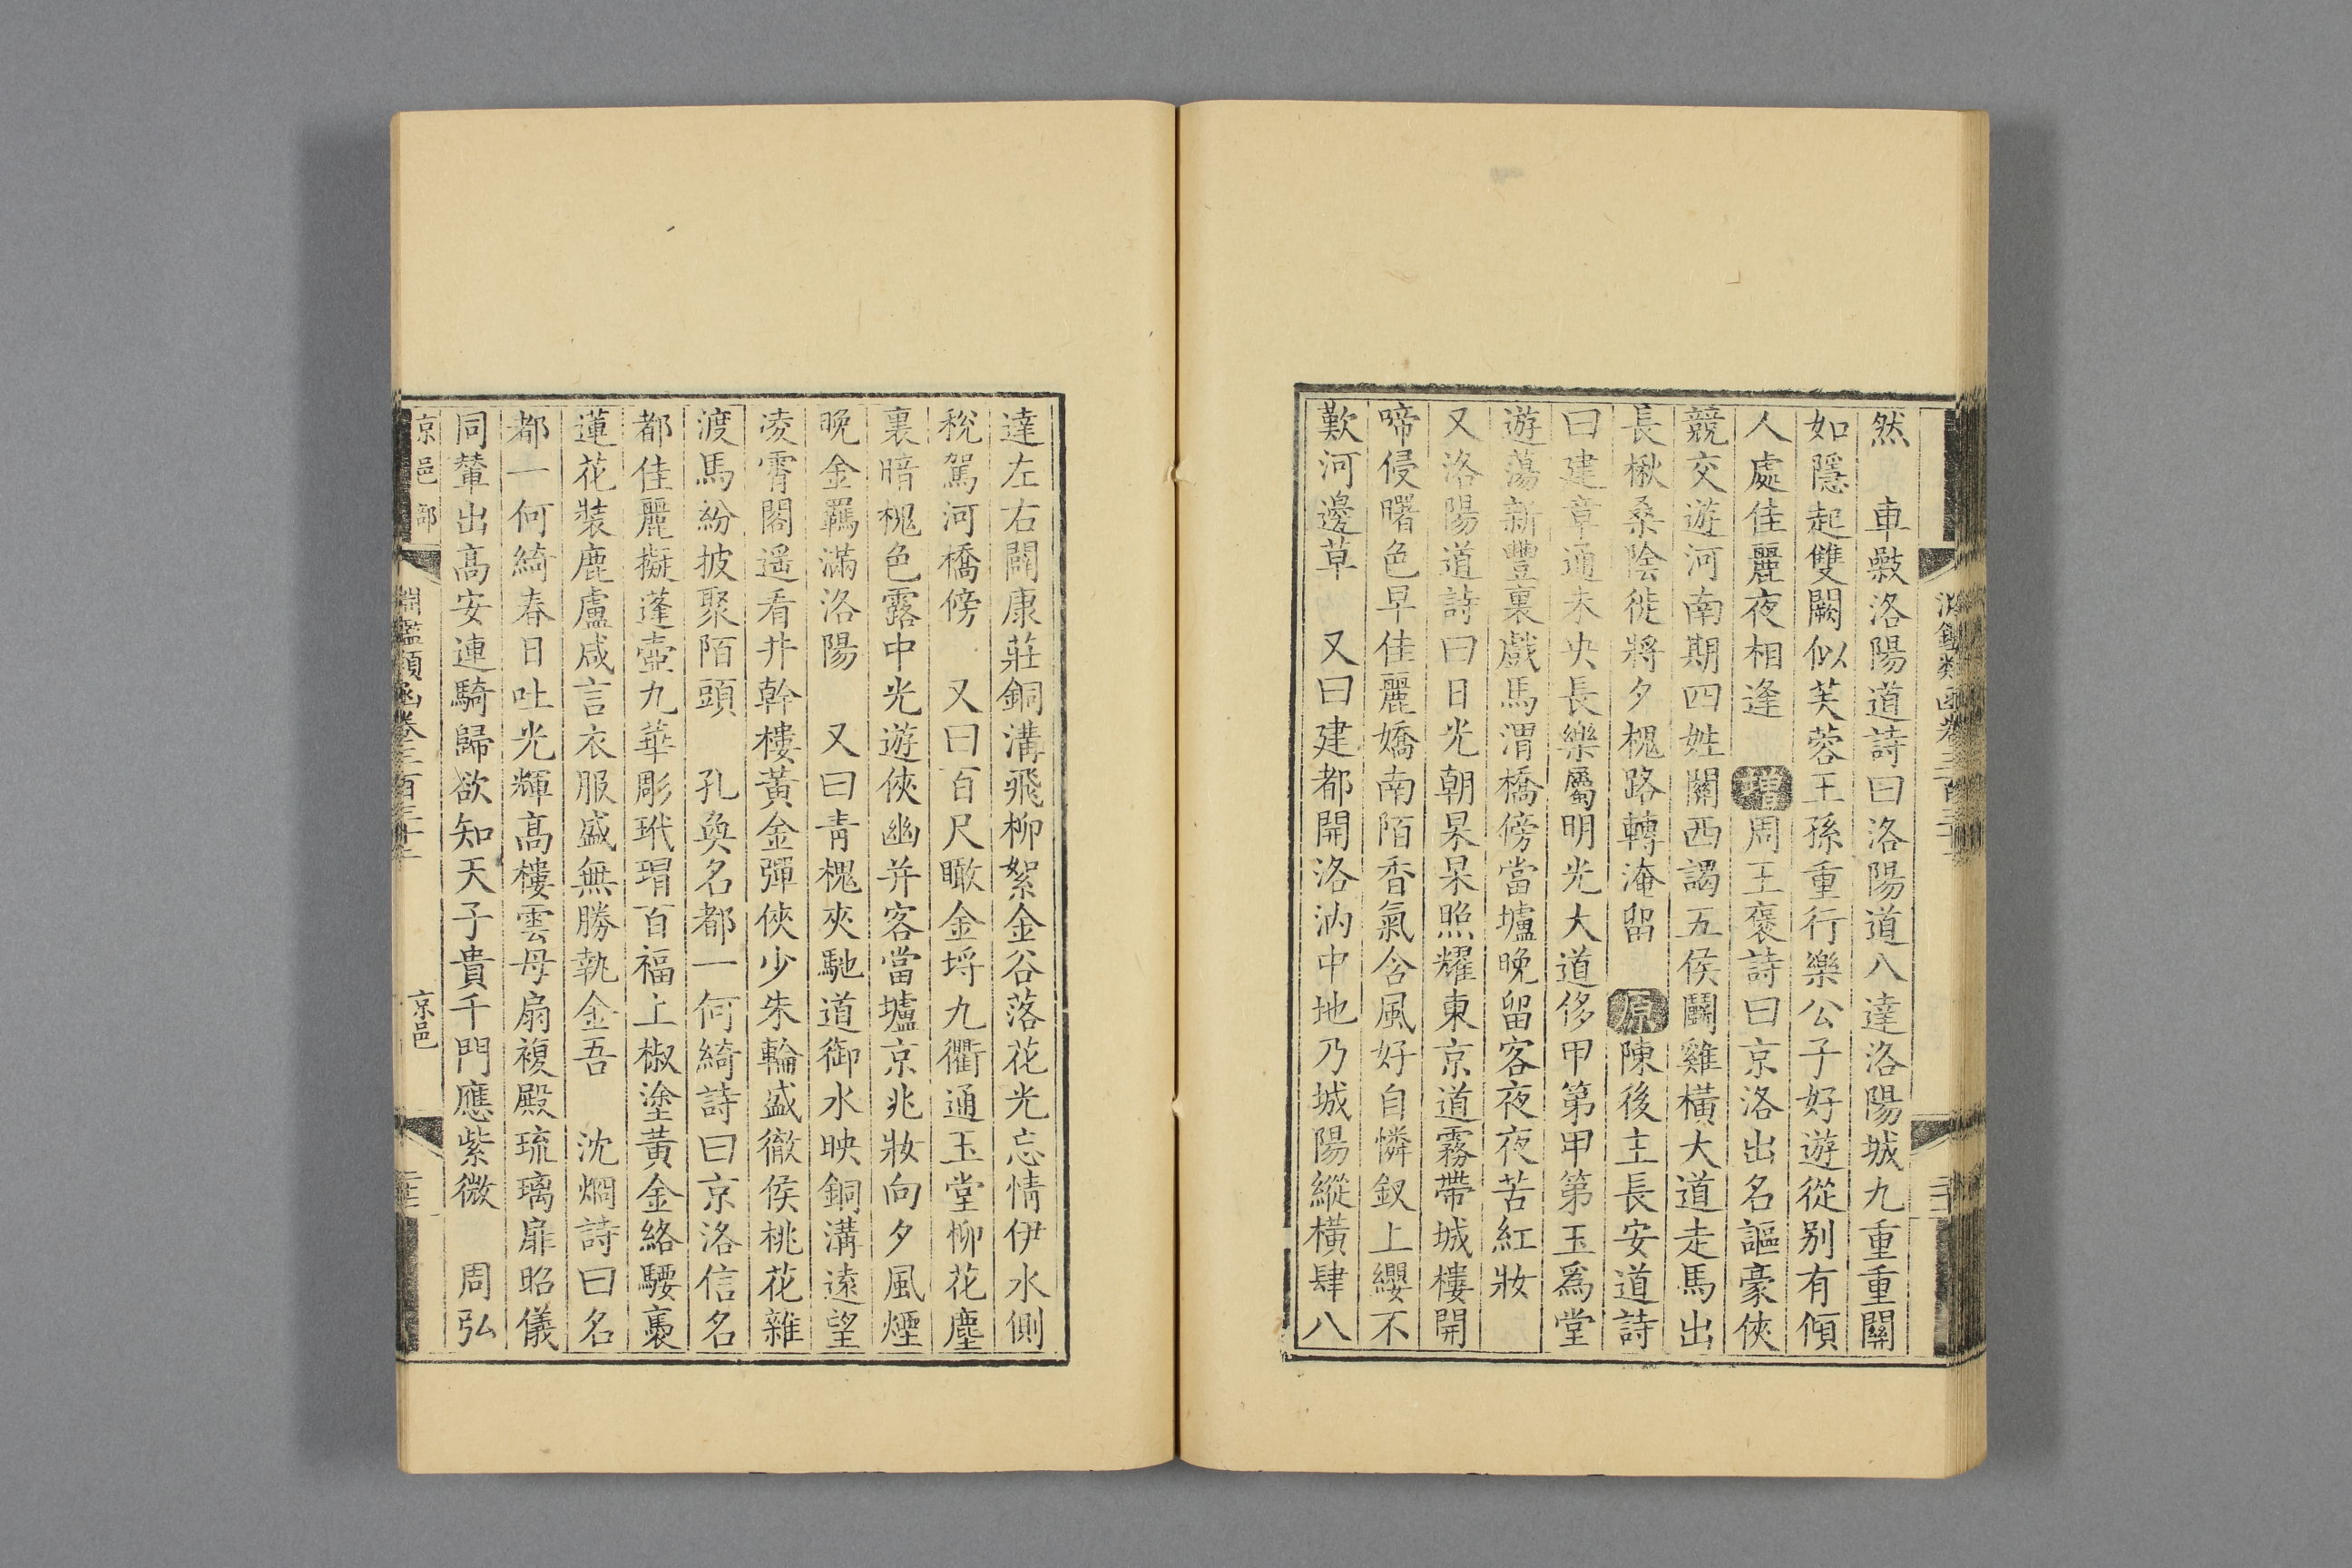 然　車𣤶洛陽道詩曰洛陽道八達洛陽城九重重關
如隱起雙闕似芙蓉王孫重行樂公子好遊從别有傾
人處佳麗夜相逢　增周王褒詩曰京洛出名謳豪俠
競交遊河南期四姓關西謁五侯鬭雞橫大道走馬出
長楸桑陰徙將夕槐路轉淹留　原陳後主長安道詩
曰建章通未央長樂屬明光大道移甲第甲第玉爲堂
遊蕩新豐裏戲馬渭橋傍當壚晚留客夜夜苦紅妝
又洛陽道詩曰日光朝杲杲照耀東京道霧帶城樓開
啼侵曙色早佳麗嬌南陌香氣含風好自憐釵上纓不
歎河邊草　又曰建都開洛汭中地乃城陽縱橫肆八
達左右闢康莊銅溝飛柳絮金谷落花光忘情伊水側
稅駕河橋傍　又曰百尺瞰金埒九衢通玉堂柳花塵
裏暗槐色露中光遊俠幽并客當壚京兆妝向夕風煙
晚金羈滿洛陽　又曰靑槐夾馳道御水映銅溝遠望
凌霄閣遥看井幹樓黃金彈俠少朱輪盛徹侯桃花雜
渡馬紛披聚陌頭　孔奐名都一何綺詩曰京洛信名
都佳麗擬蓬壺九華彫玳瑁百福上椒塗黃金絡騕褭
蓮花裝鹿盧咸言衣服盛無勝執金吾　沈烱詩曰名
都一何綺春日吐光輝高樓雲母扇複殿琉璃扉昭儀
同輦出高安連騎歸欲知天子貴千門應紫微　周弘
京邑部　淵鑑類函卷三百三十三　京邑